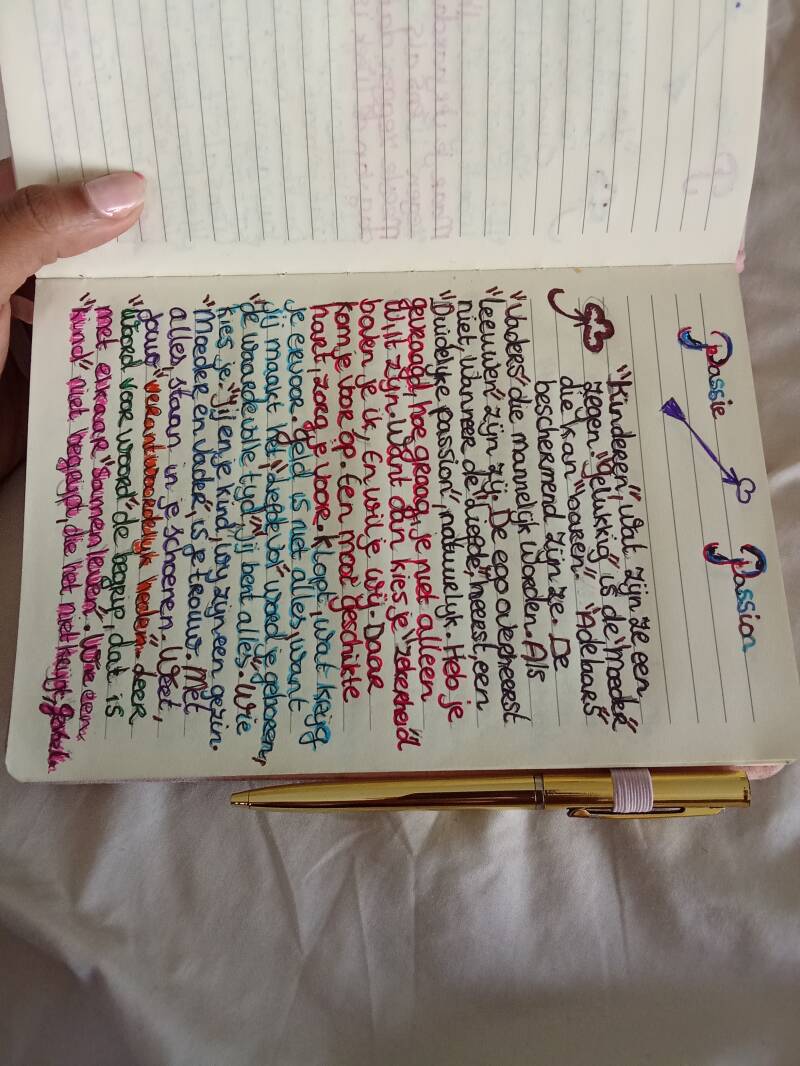 Passie Passion
"Kinderen", wat zijn ze een
zegen "gelukkig" is de "moeder"
die kan "baren." "Adelaars"
beschermend zijn ze. De
"Vaders" die mannelijk worden. Als
"leeuwen" zijn zij. De ego overheerst
niet, wanneer de "liefde", heerst, een
"Duidelijke passion", natuurlijk. Heb je
gevraagd, hoe graag, je niet alleen
wilt zijn. Want dan kies je "zekerheid
boven je ik, En wil je wij. Daar
kom je voor op. Een mooi geschikte
hart, zorg je voor. Klopt, wat krijg
je ervoor. Geld is niet alles, want
jij maakt het, "liefdevol" word je geboren,
"de waardevolle tijd, jij bent alles." Wie
kies je. "Jij en je kind, wij zijn een gezin.
"Moeder en Vader", is je trouw. Met
alles, staan in je schoenen". Weet,
jouw "verantwoordelijk heden. door
"Woord voor woord" de begrip, dat is
met elkaar "samen leven".
"kind" niet begrijpt, die het niet krijgt,